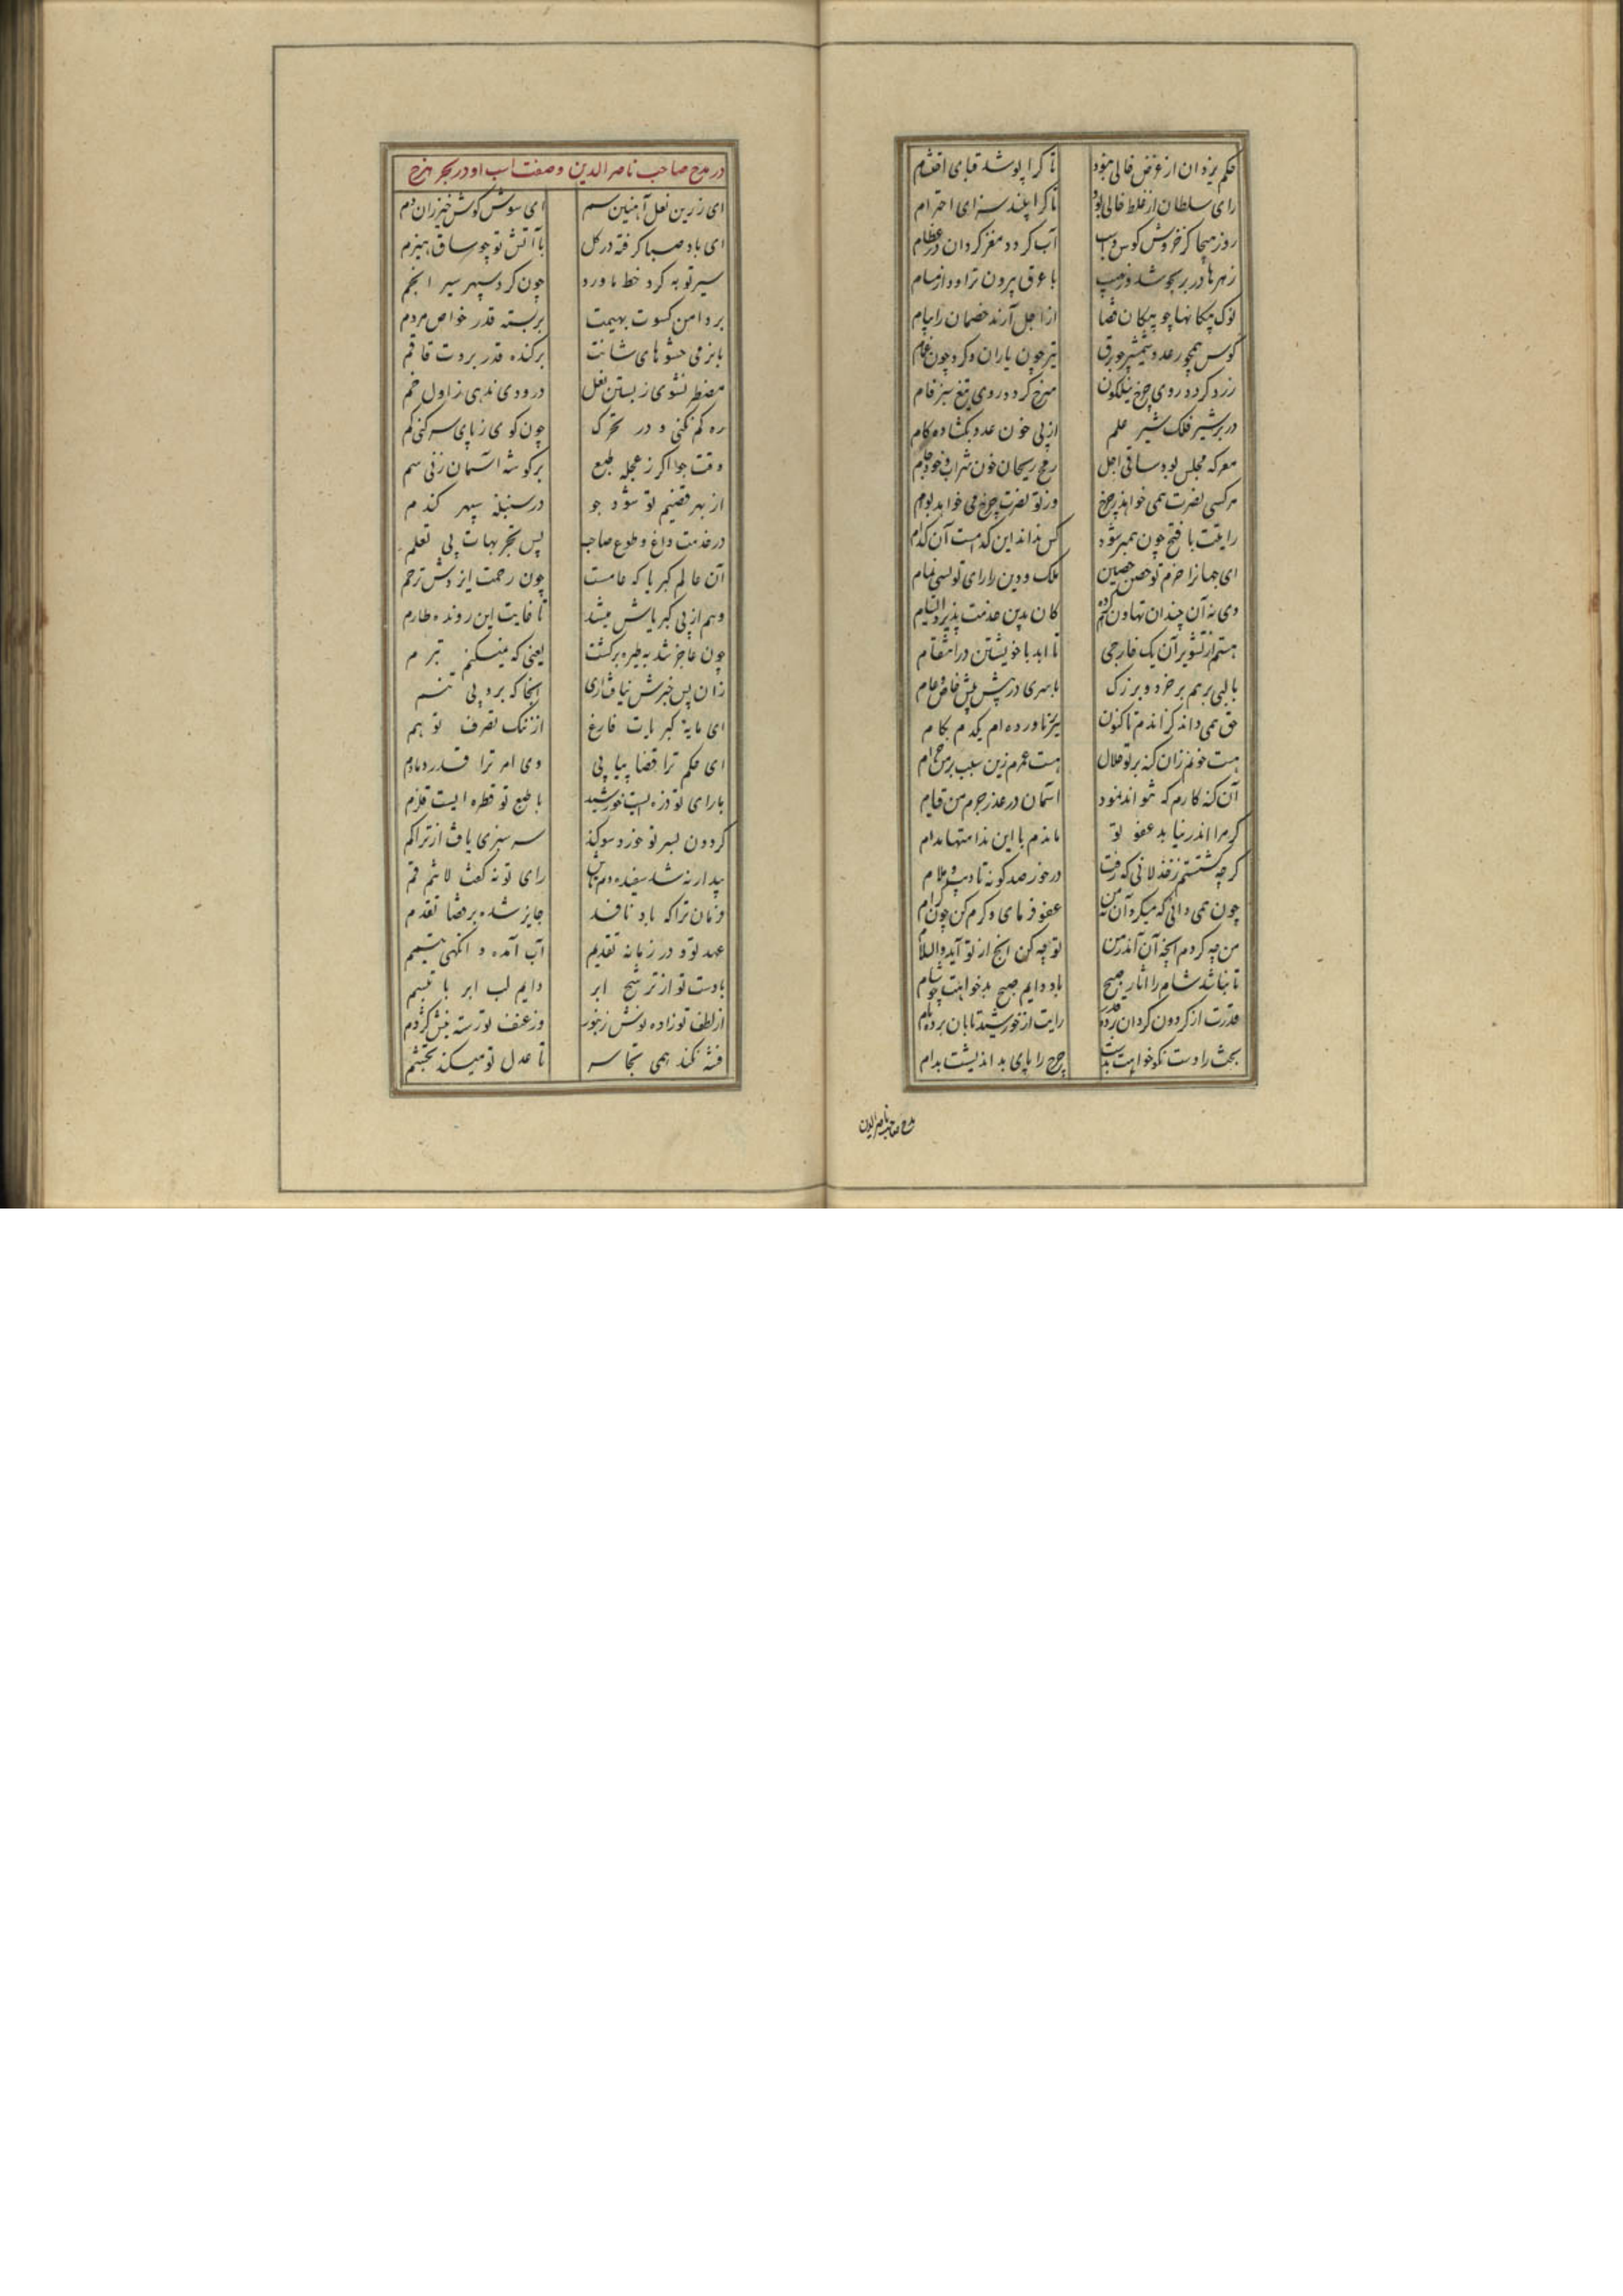 حکم یزدان از غرض خالی نبود تا کرا پوشد قبای احتشام
رای سلطان از غلط خالی بود تا کرا بیند سزای احترام
روز هیجا کز خروش کوس و اسب آب کردد مغز کردان در عظام
زهرها در بر بجوشد وز نهیب با عرق بیرون تراود از مسام
نوک پیکانها چو پیکان قضا از اجل آرند خصمان را پیام
کوس همچو رعد و شمشیر چو برق تیر چون باران و کرد چون غمام
زرد کردد روی چرخ نیلکون سرخ کردد روی تیغ سبز فام
در بر شیر فلک شیر علم از پی خون عدو بکشاده کام
معرکه مجلس بود ساقی اجل رمح ریحان خون شراب و خود جام
هر کسی نصرت همی خواهد ز چرخ وز تو نصرت چرخ می خواهد بوام
رایتت با فتح چون همبر شود کس نداند این کدامست آن کدام
ای جهانرا حزم تو حصن حصین ملک و دین را رای تو لسی نیام
وی نه آن چندان تهاون کرده‌ام کان بدین خدمت پذیرد التیام
هستم از تشویر آن یک خارجی تا ابد با خویشتن در انتقام
با لبی بر هم بر خرد و بزرک با سری در پیش پیش خاص و عام
حق همی داند کز اندم تاکنون نیز ناورده‌ام یکدم بکام
هست خونم زان کنه بر تو حلال هست عمرم زین سبب بر من حرام
آن کنه کارم که نتواند نمود آسمان در عذر جرم من قیام
کر مرا اندر نیابد عفو تو ماندم با این ندامتها مدام
کرچه کشتستم ز خذلانی که رفت در خور صد کونه تادیب و ملام
چون همی دانی که میکرد آن نه من عفو فرمای و کرم کن چون کرام
من چه کردم آنچه آن آمد ز من تو چه کن آنچ از تو آید والسلام
تا نباشد شام را آثار صبح باد دایم صبح بدخواهت چو شام
قدرت از کردون کردان برده قدر رایت از خورشید تابان برده نام
بخت را دست نکوخواهت بدست چرخ را پای بد اندیشت بدام
مدح صاحب ناصرالدین
در مدح صاحب ناصر الدین و صفت اسب او در بحر هزج
ای زرین نعل آهنین سم ای سوسن کوش خیزران دم
ای باد صبا کرفته در کل با آتش تو چو ساق هیزم
سیر تو به کرد خط ناورد چون کرد سپهر سیر انجم
بر دامن کسوت بهیمت بر بسته قدر خواص مردم
با نرمی حشوهای شانت برکنده قدر بروت قاقم
مضطر نشوی ز بستن نعل در وردی ندهی ز اول خم
ره کم نکنی و در تحرک چون کوی ز پای سر کنی کم
وقت جو اکر ز عجله طبع بر کوشه آسمان زنی سم
از بهر قضیم تو شود جو در سنبله سپهر کندم
در خدمت داغ و طوع صاحب پس تجربهات بی تعلم
آن عالم کبریا که عامست چون رحمت ایزدش ترحم
وهم از پی کبریاش میشد تا غایت این رونده طارم
چون عاجز شد به طیره برکشت یعنی که نمیکنم تبرم
زان پس خبرش نیافت آری آنجا که برد پی تنسم
ای مایه کبریات فارغ از ننک تصرف توهم
ای حکم ترا قضا پیاپی وی امر ترا قدر دمادم
با رای تو ذره ایست خورشید با طبع تو قطره ایست قلزم
کردون بسر تو خورد سوکند سرسبزی یافت از تراکم
بیدار نه شد سفیده دم تاش رای تو نه کفت لا ینم قم
فرمان تراکه باد نافذ جایز شده بر قضا تقدم
عهد تو و در زمانه تقدیم آب آمده و آنکهی تیمم
با دست تو از ترشح ابر دایم لب ابر با تبسم
از لطف تو زاده نوش زنبور وز عنف تو رسته نیش کژدم
فتنه نکند همی تجاسر تا عدل تو میکند تجشم